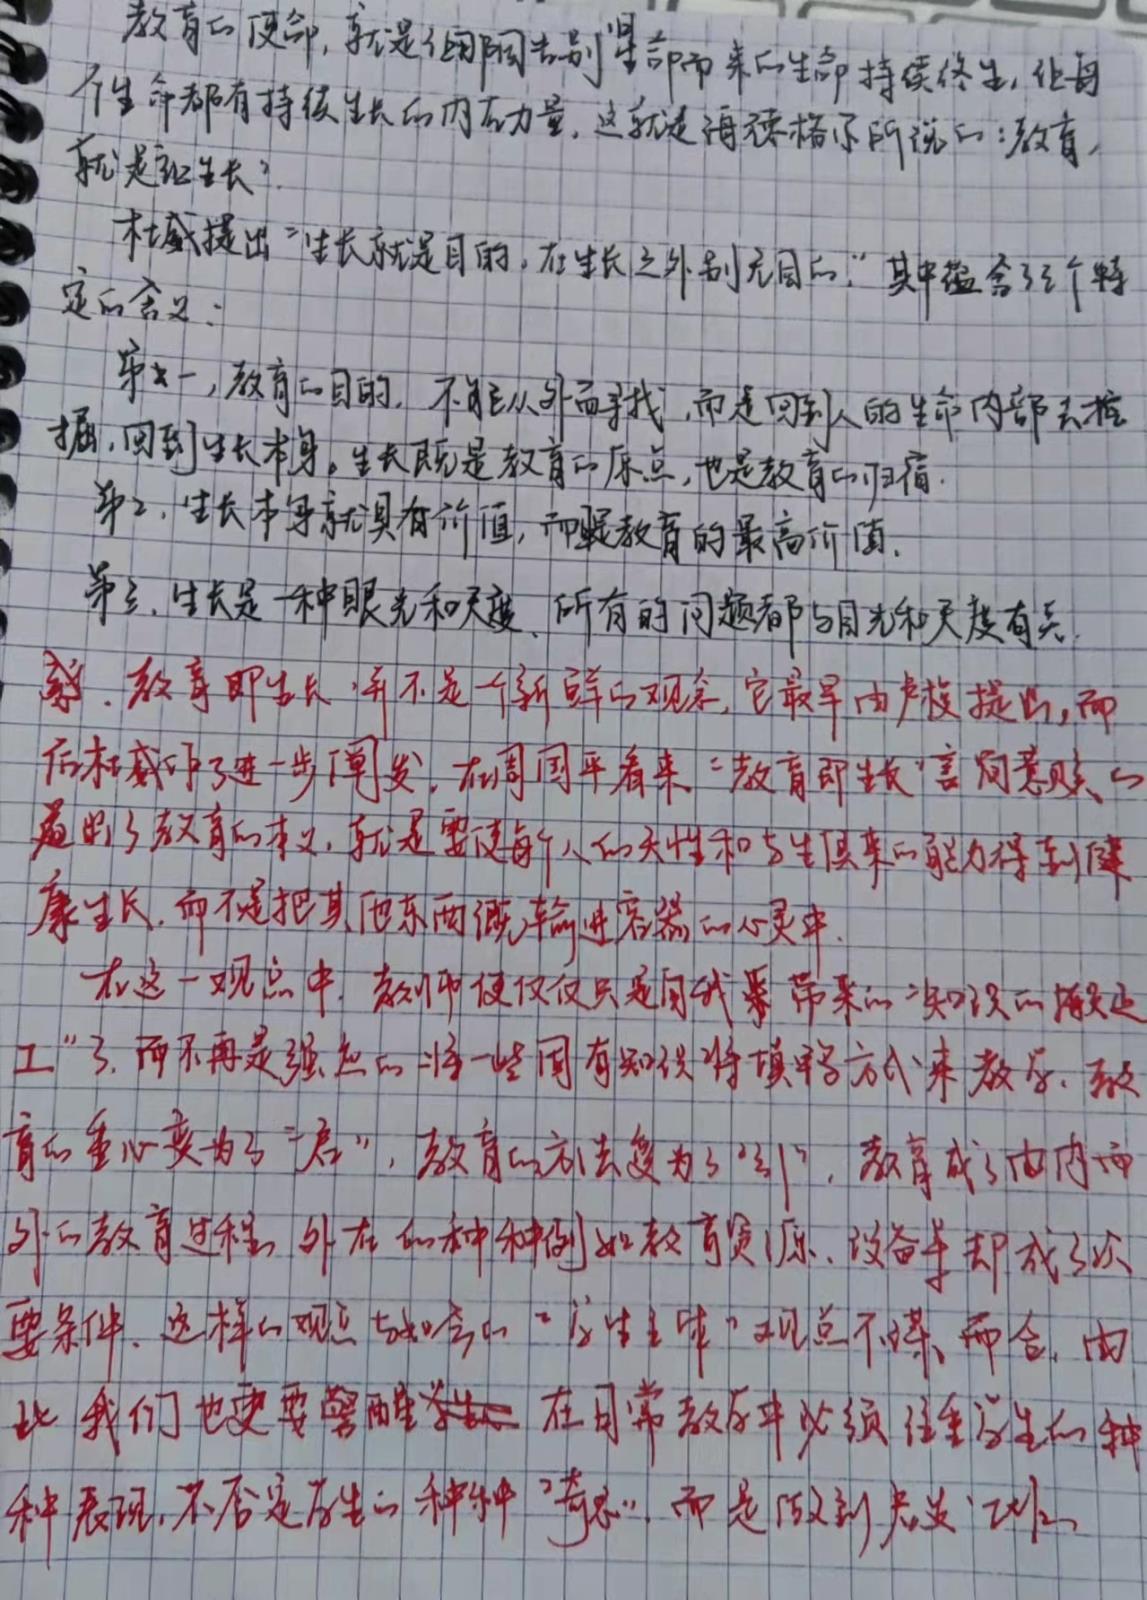 教育的使命,就是让因向生命而来的生命持续终生,让每
个生命都有持续生长的内在力量,这就是海德格尔所说的:教育,
就是让生长”.
杜威提出“生长就是目的,在生长之外别无目的,”其中蕴含了三个特
定的含义:
第一,教育的目的,不能从外面寻找,而是回到人的生命内部去挖
掘,回到生长本身。生长既是教育的原点,也是教育的归宿.
第2,生长本身就具有价值,而且是教育的最高价值.
第三,生长是一种眼光和天度、所有的问题都与目光和天度有关.
教育即生长,并不是一个新鲜的观念,它最早由卢梭提出,而
后杜威作了进一步阐发,在周国平看来“教育即生长”言简意赅的
道出了教育的本义,就是要使每个人的天性和与生俱来的能力得到健
康生长,而不是把其他东西灌输进容器的心灵中.
在这一观点中,教师便仅仅只是自我带来的“知识的搬运
工”了,而不再是强热的将一些固有知识将填鸭方式来教学,教
育的重心变为了“启”,教育的方法变为了“引”,教育成了由内而
外的教育过程,外在的种种例如教育资源、设备等却成了次
要条件.这样的观点与如今的“学生主体”观点不谋而合,由
此我们也更要警醒在日常教学中必须注重学生的种
种表现,不否定学生的种种“奇思”,而是做到启发